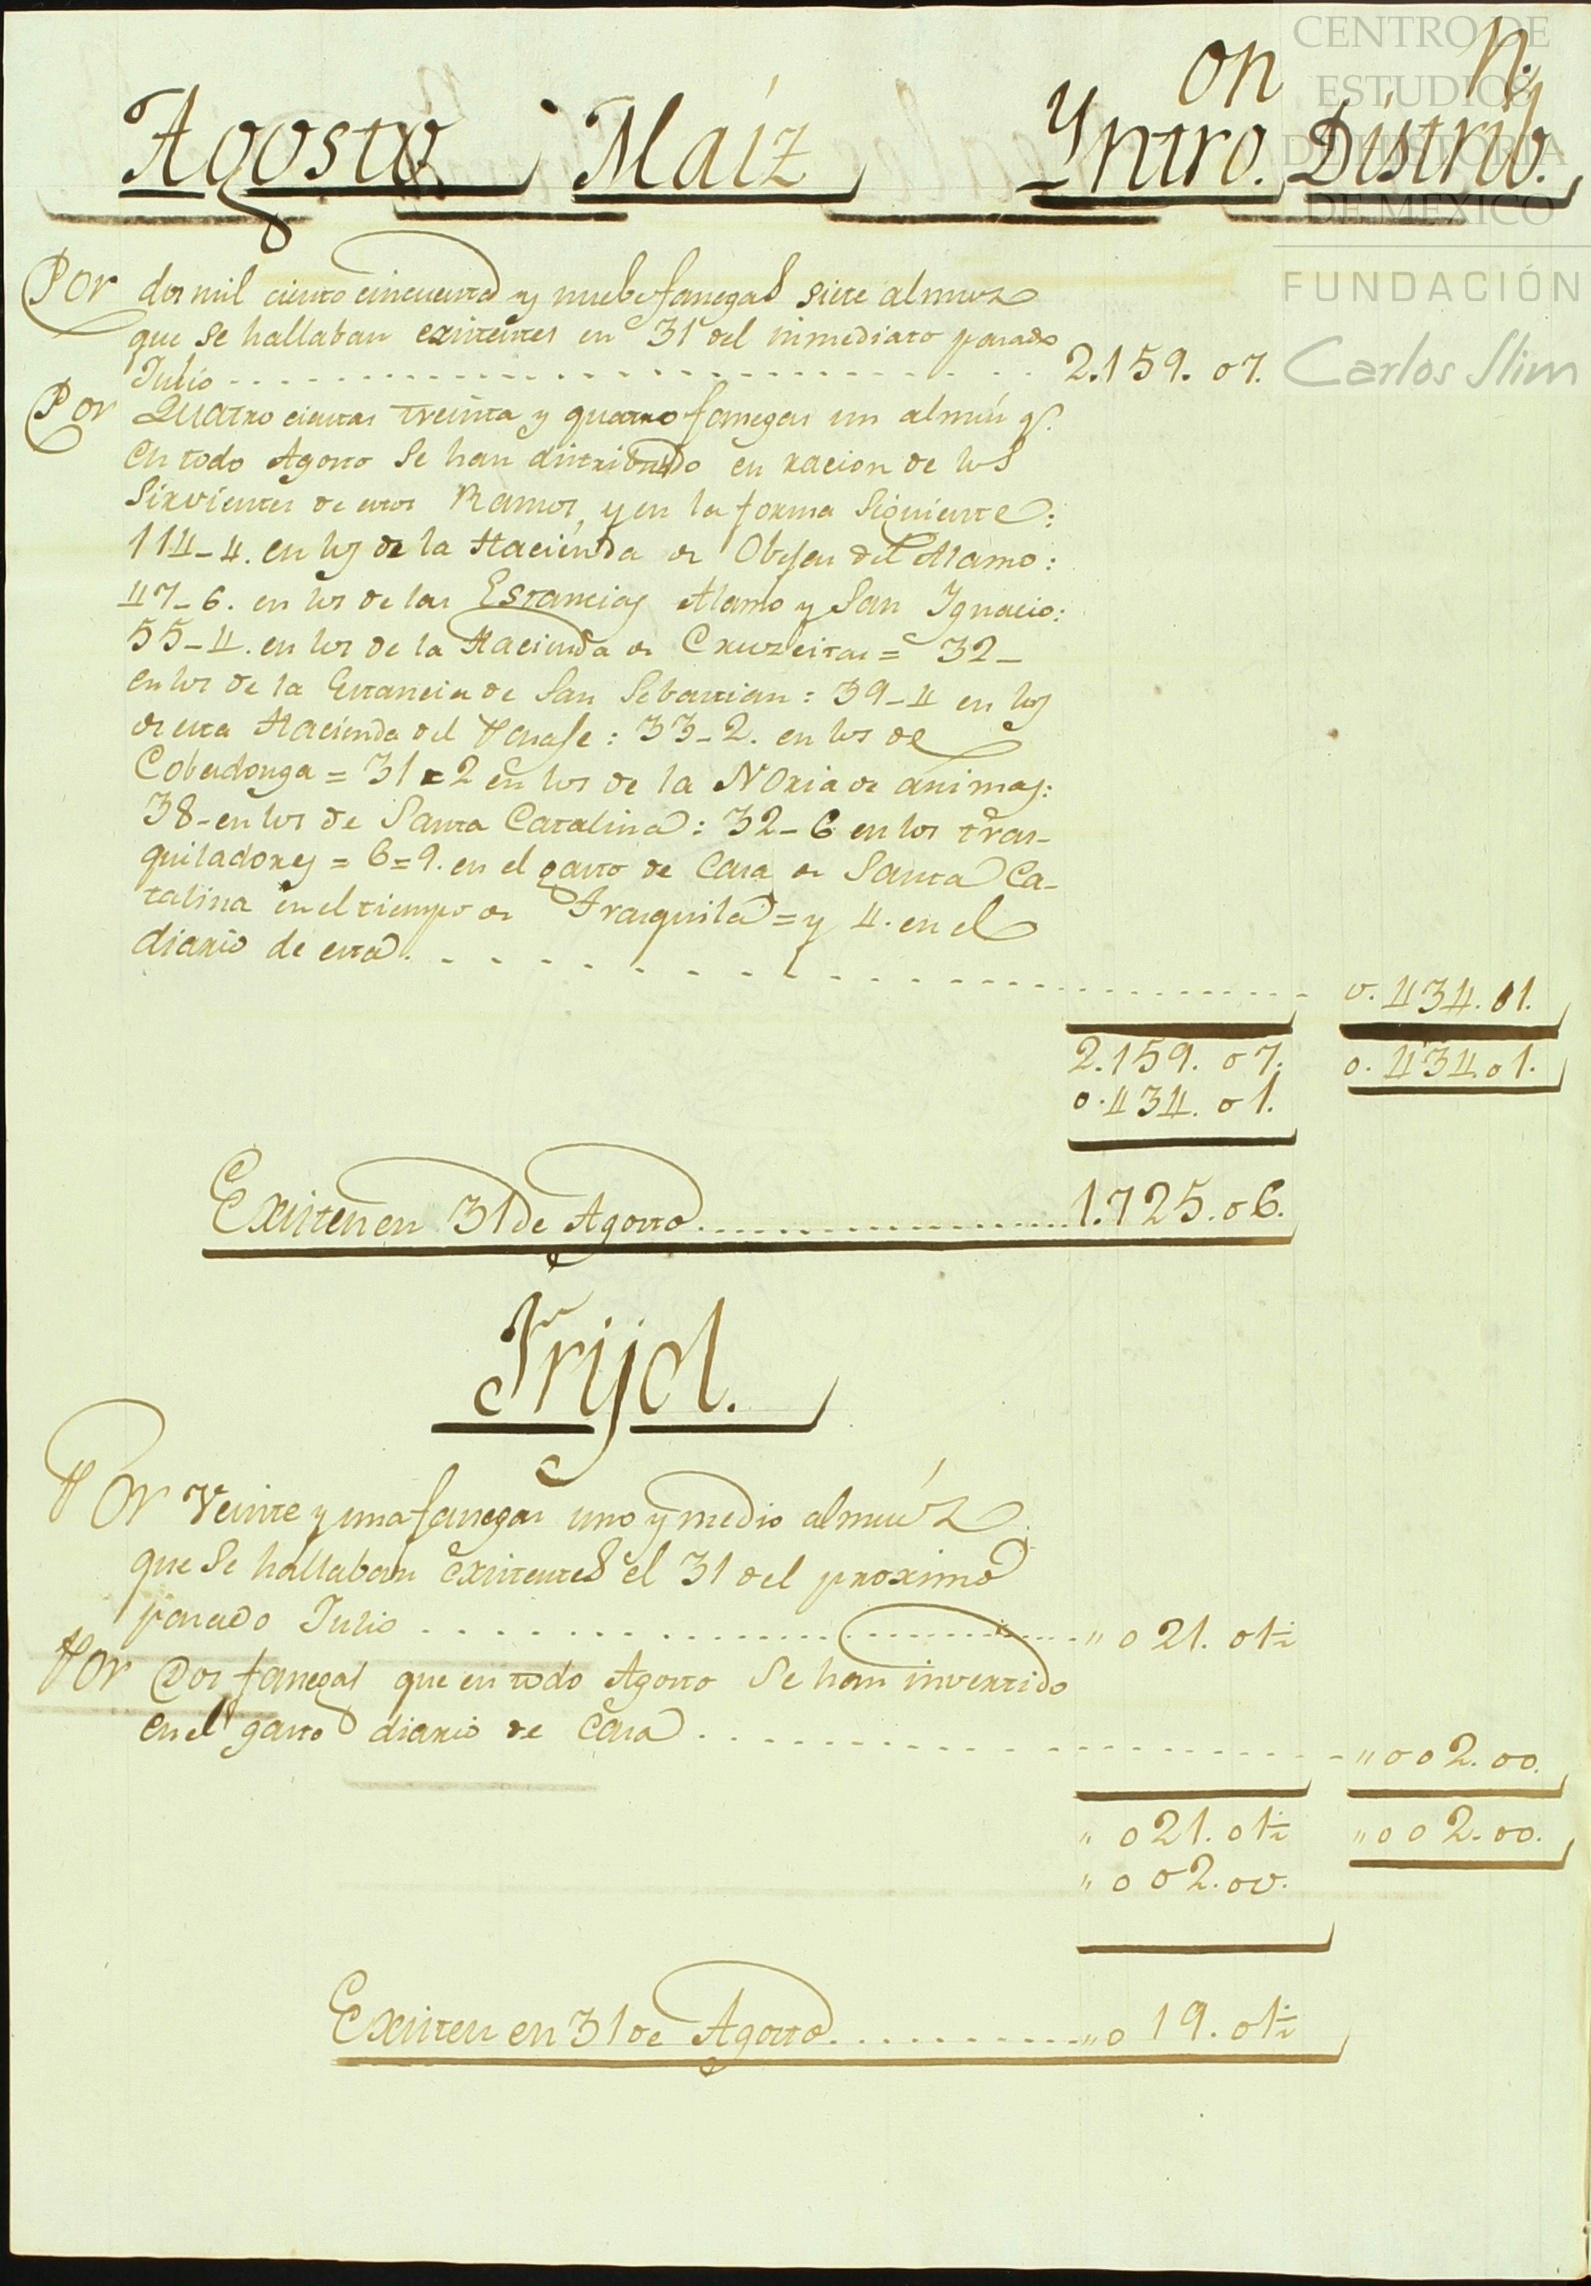 CENTRO DE
ESTUDIOS
DE HISTORIA
DE MEXICO
FUNDACIÓN
Carlos Slim
Agosto Maíz Yntro.on Distrib.n
Por dos mil ciento cincuenta y nuebe fanegas siete almuz
que se hallaban existentes en 31 del inmediato pasado
Julio 2.159. 07.
Por Quatro cientas treinta y quatro fanegas un almú q.
en todo Agosto se han distribuido en racion de los
Sirvientes de estos Ramos, y en la forma siguiente:
114-4. en los de la Hacienda de Obejas del Alamo:
47-6. en los de las Estancias Alamo y San Ignacio:
55-4. en los de la Hacienda de Cruzeitas = 32-
en los de la Estancia de San Sebastian: 39-4 en los
de esta Hacienda del : 33-2. en los de
Cobadonga = 31=2 en los de la Noria de animas:
38-en los de Santa Catalina: 32-6 en los tras-
quiladores = 6=9. en el gasto de Casa de Santa Ca-
talina en el tiempo de Trasquila = y 4. en el
diario de esta. 0. 434. 01.
2.159. 07. 0. 434.01.
0.434. 01.
Existen en 31 de Agosto 1.725.06.
Frijol.
Por Veinte y una fanegas uno y medio almúz
que se hallaban existentes el 31 del proximo
pasado Julio " 021. 01½
Por Dos fanegas que en todo Agosto se han invertido
en el gasto diario de Casa " 002. 00.
" 021. 01½ " 002. 00.
" 002. 00.
Existen en 31 de Agosto " 019. 01½